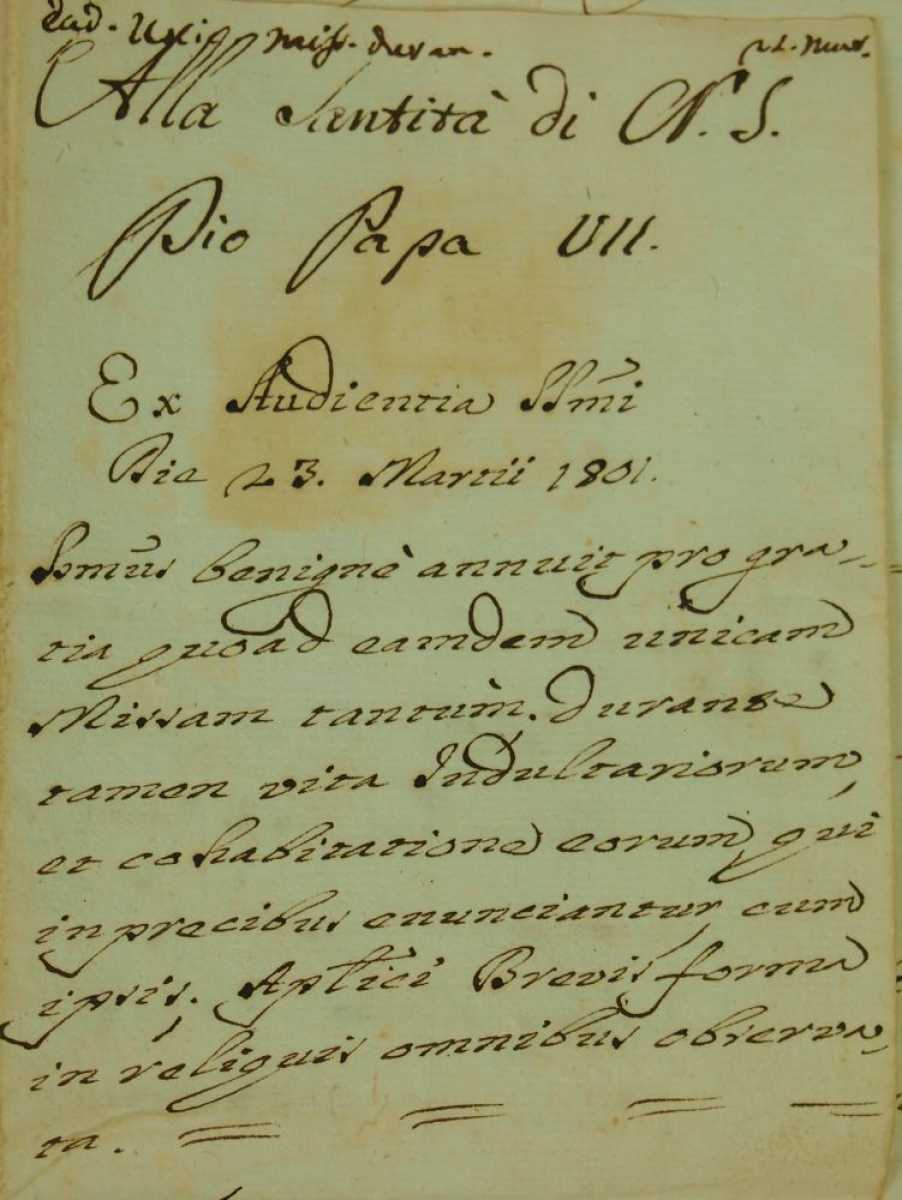 Alla Santità di N. S.
Pio Papa VII.
Ex Audientia SSmi
Die 23. Martii 1801.
Ssmus benignè annuit pro gra-
tia quoad eamdem unicam
Missam tantùm. durante
tamen vita Indultariorum,
et cohabitatione eorum, qui
in precibus enunciantur cum
ipsis; Aplici Brevis forma
in reliquis omnibus observa-
ta.